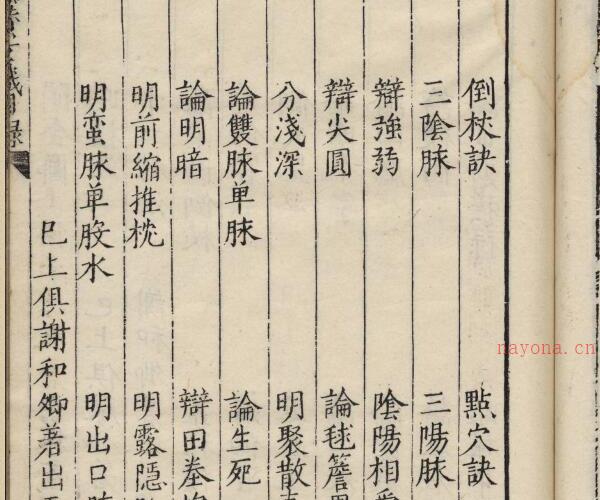 倒杖訣 點穴訣
三陰脉 三陽脉
辯強弱 陰陽相
辯尖圓 論毬簷
分淺深 明聚散
論雙脉单脉 論生死
論明暗 辯田塍
明前縮推枕 明露隱
明蛮脉单股水 明出口
巳上俱謝和卿著出
目錄
nayona.cn